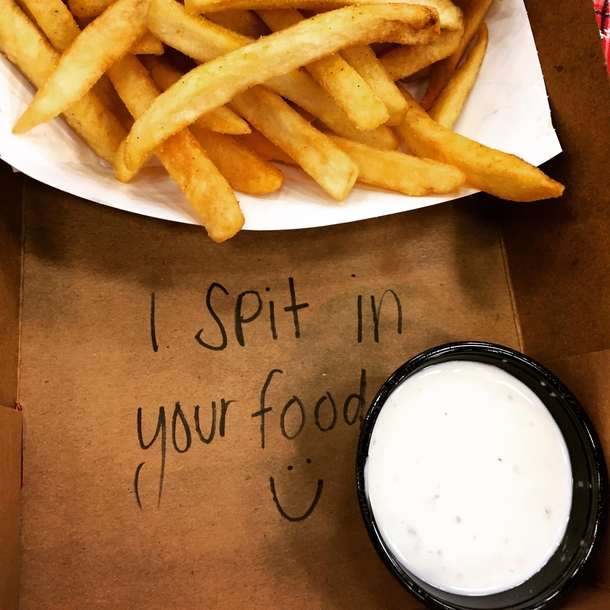 I spit in
your food